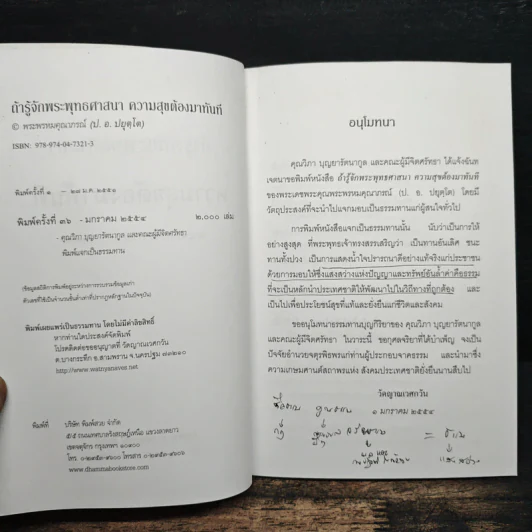 ถ้ารู้จักพระพุทธศาสนา ความสุขต้องมาทันที
© พระพรหมคุณาภรณ์ (ป. อ. ปยุตฺโต)
ISBN: 978-974-04-7321-3
พิมพ์ครั้งที่ ๑ - ๒๘ ม.ค. ๒๕๕๑
พิมพ์ครั้งที่ ๓๖ - มกราคม ๒๕๕๔ ๒,๐๐๐ เล่ม
- คุณวิภา บุญยารัตนากูล และคณะผู้มีจิตศรัทธา
พิมพ์แจกเป็นธรรมทาน
พิมพ์เผยแพร่เป็นธรรมทาน โดยไม่มีค่าลิขสิทธิ์
หากท่านใดประสงค์จัดพิมพ์
โปรดติดต่อขออนุญาตที่ วัดญาณเวศกวัน
ต.บางกระทึก อ.สามพราน จ.นครปฐม ๗๓๒๑๐
http://www.watnyanaves.net
พิมพ์ที่ บริษัท พิมพ์สวย จำกัด
๕/๕ ถนนเทศบาลรังสฤษฎ์เหนือ แขวงลาดยาว
เขตจตุจักร กรุงเทพฯ ๑๐๙๐๐
www.dhammabookstore.com
อนุโมทนา
คุณวิภา บุญยารัตนากูล และคณะผู้มีจิตศรัทธา ได้แจ้งฉันท
เจตนาขอพิมพ์หนังสือ ถ้ารู้จักพระพุทธศาสนา ความสุขต้องมาทันที
ของพระเดชพระคุณพระพรหมคุณาภรณ์ (ป. อ. ปยุตฺโต) โดยมี
วัตถุประสงค์ที่จะนำไปแจกมอบเป็นธรรมทานแก่ผู้สนใจทั่วไป
การพิมพ์หนังสือแจกเป็นธรรมทานนั้น นับว่าเป็นการให้
อย่างสูงสุด ที่พระพุทธเจ้าทรงสรรเสริญว่า เป็นทานอันเลิศ ชนะ
ทานทั้งปวง เป็นการแสดงน้ำใจปรารถนาดีอย่างแท้จริงแก่ประชาชน
ด้วยการมอบให้ซึ่งแสงสว่างแห่งปัญญาและทรัพย์อันล้ำค่าคือธรรม
ที่จะเป็นหลักนำประเทศชาติให้พัฒนาไปในวิถีทางที่ถูกต้อง และ
เป็นไปเพื่อประโยชน์สุขที่แท้และยั่งยืนแก่ชีวิตและสังคม
ขออนุโมทนาธรรมทานบุญกิริยาของ คุณวิภา บุญยารัตนากูล
และคณะผู้มีจิตศรัทธา ในวาระนี้ ขอกุศลจริยาที่ได้บำเพ็ญ จงเป็น
ปัจจัยอำนวยจตุรพิธพรแก่ท่านผู้ประกอบจาคธรรม และนำมาซึ่ง
ความเกษมศานต์สถาพรแห่ง สังคมประเทศชาติยั่งยืนนานสืบไป
วัดญาณเวศกวัน
๑ มกราคม ๒๕๕๔